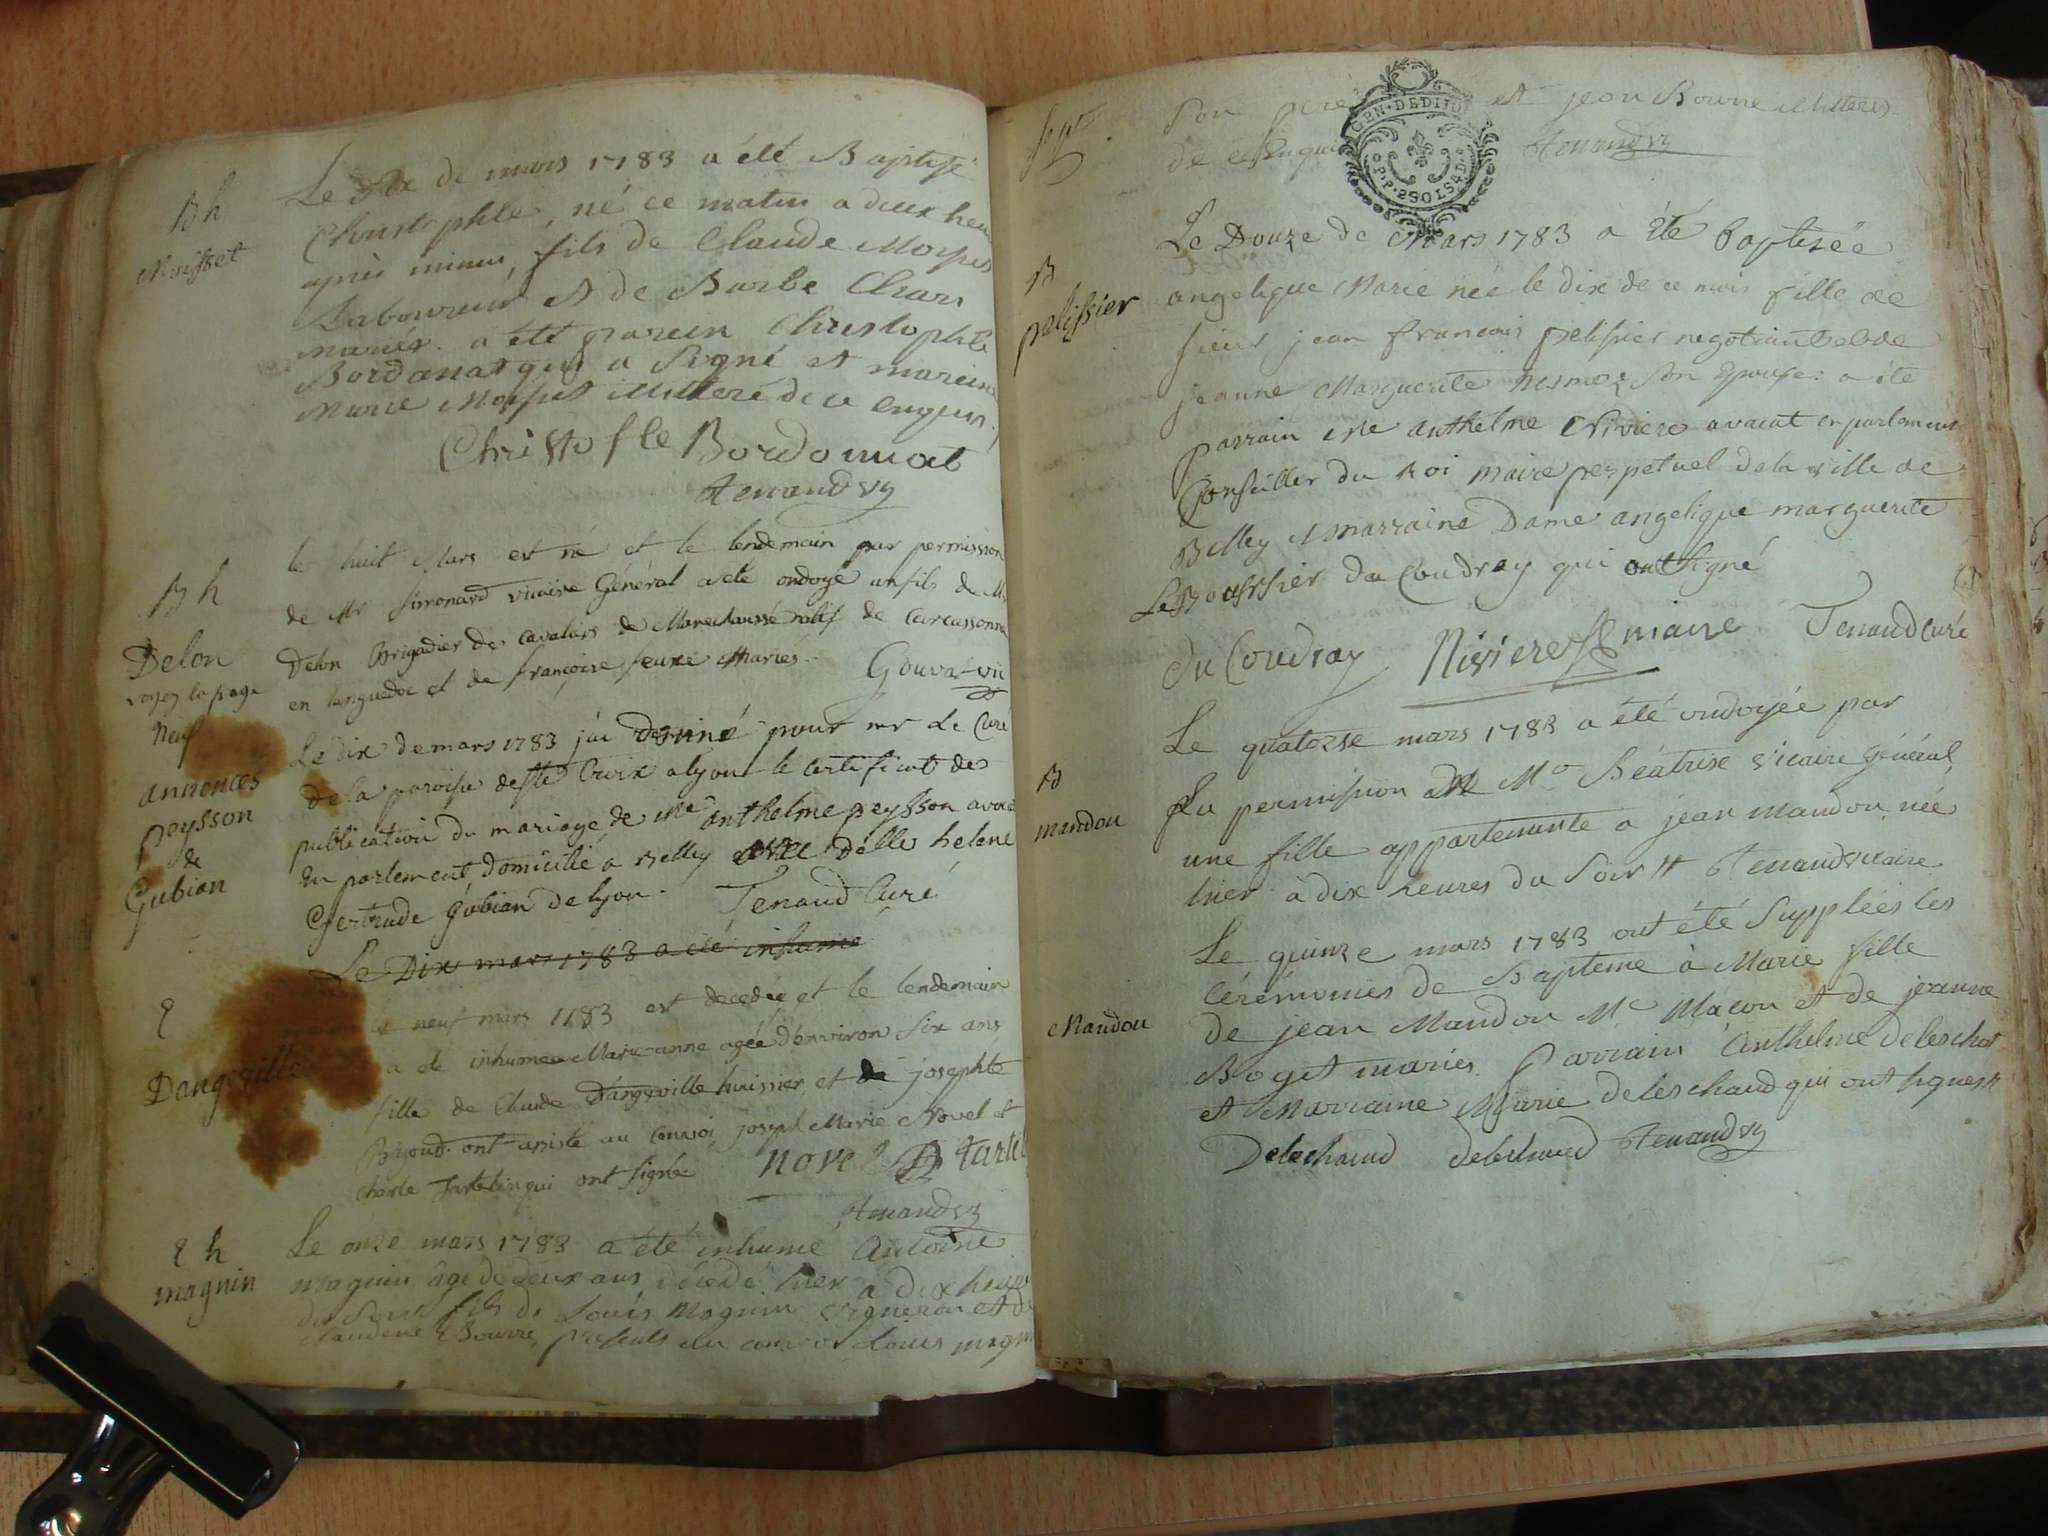 B h
Moisset
Le Six de mars 1783 a été Baptisé
Christophle, né ce matin a deux heu
après minui, fils de Claude Moisset
Laboureur et de Barbe Charv
mariés. a été parein Christophle
Bordonat qui a Signé et mareine
Marie Moisset illitteré de ce enquis
Christofle Bordonnat
Tenand vic
B h
Delon
voyez la page
neuf
le huit Mars est né et le lendemain par permission
de Mr Simonard vicaire Général a été ondoyé un fils de Mr
Delon Brigadier des cavaliers de Marechaussé natif de Carcassonne
en languedoc et de françoise feuxe Mariés. Gouvat vic
annonces
peysson
de
Gubian
Le dix de mars 1783 j'ai donné pour mr Le Curé
de la paroisse de Ste Croix a lyon le certificat de
publication du mariage de Me anthelme peysson avocat
en parlement domicilié a Belley avec délle helene
Gertrude Gubian de lyon. Tenand Curé
Le Dix mars 1783 a été inhumé
Dangeville
le neuf mars 1783 est decedée et le lendemain
a été inhumée Marie anne agée d'environ Six ans
fille de Claude Dangeville huissier et de josephte
Bijoud. ont assisté au convoi joseph Marie Novel et
charle Tartelin qui ont signé novel Tarte
Tenand vic
h
magnin
Le onze mars 1783 a été inhumé Antoine
magnin âgé de deux ans décedé hier a dix heures
du Soir fils de Louis Magnin vigneron et de
claudine Bourre, presents au convoi Louis magn
Son pere et jean Bourre illiteres
de ce enquis Tenand vic
GEN. DE DIJON
P.P. 2 SOLS 4 D.
B
pelissier
Le Douze de Mars 1783 a été baptisée
angelique Marie née le dix de ce mois fille de
sieur jean francois pelissier negotiant et de
jeanne Marguerite Nesmez Son Epouse: a été
parrain Me anthelme Riviere avocat en parlement
Conseiller du Roi maire perpetuel de la ville de
Belley et marraine Dame angelique marguerite
Le Boursier du Coudray qui ont signé
du Coudray Riviere maire Tenand Curé
B
mandou
Le quatorse mars 1783 a été ondoyée par
La permission de Mr Béatrix Vicaire Général,
une fille appartenante a jean Mandou née
hier à dix heures du Soir // Tenand vicaire
Mandou
Le quinze mars 1783 ont été Suppléés les
Cérémonies de Bapteme à Marie fille
de jean Mandou Me Macon et de jeanne
Boget mariés. Parrain Anthelme deleschat
et Marraine Marie deleschaud qui ont signés //
Deleschaud deleschaud Tenand vic